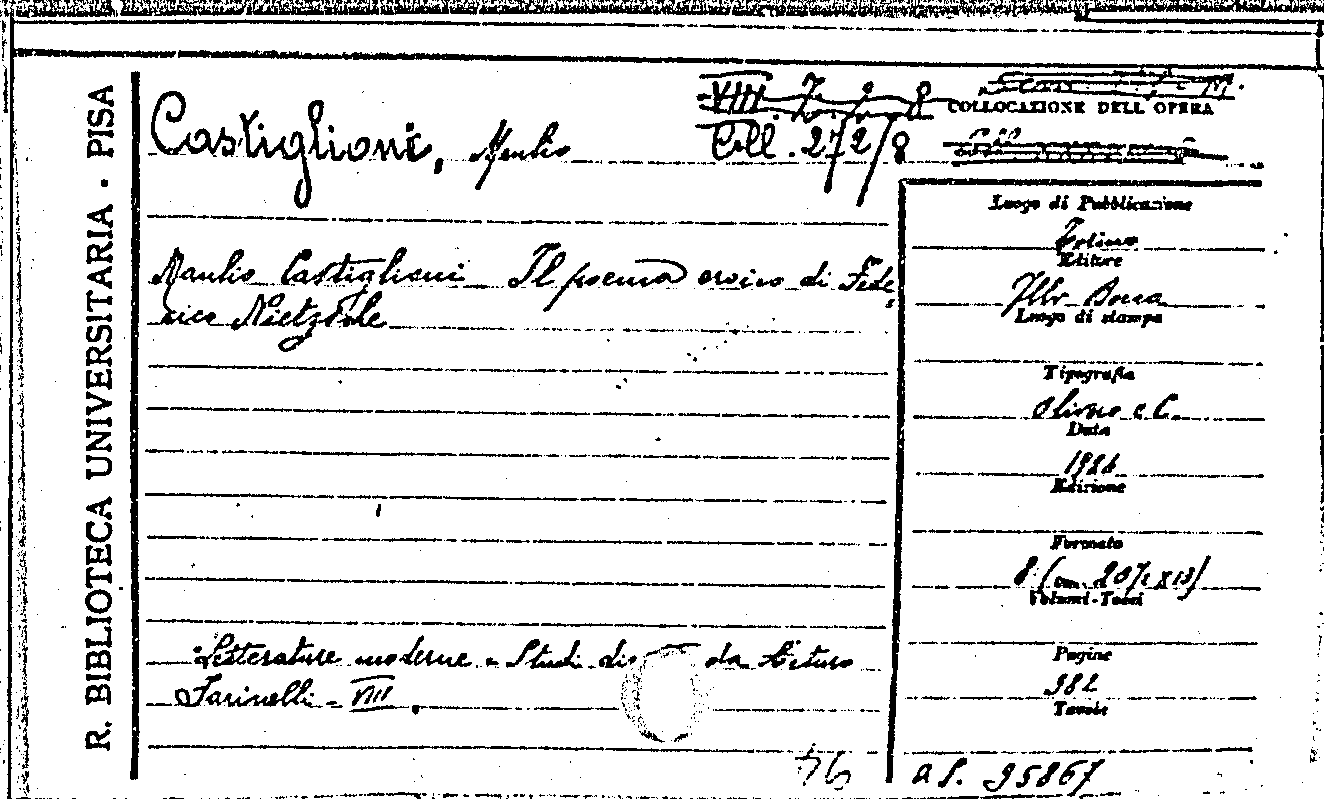 R. BIBLIOTECA UNIVERSITARIA · PISA
VIII. 7. 2. 8
COLLOCAZIONE DELL OPERA
Castiglioni, Manlio
Coll. 27/2/8
Manlio Castiglioni Il poema eroico di Fede-
rico Nietzsche
Luogo di Pubblicazione
Torino
Editore
Flli Bocca
Luogo di stampa
Tipografia
Olivero e C.
Data
Edizione
Formato
8 (cm. 20½ x 13)
Volumi-Tomi
Pagine
382
Tavole
Letterature moderne - Studi da Arturo
Farinelli - VIII
as. 95867